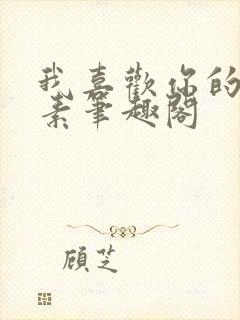 我喜歡你的
素筆趣閣
顾芝